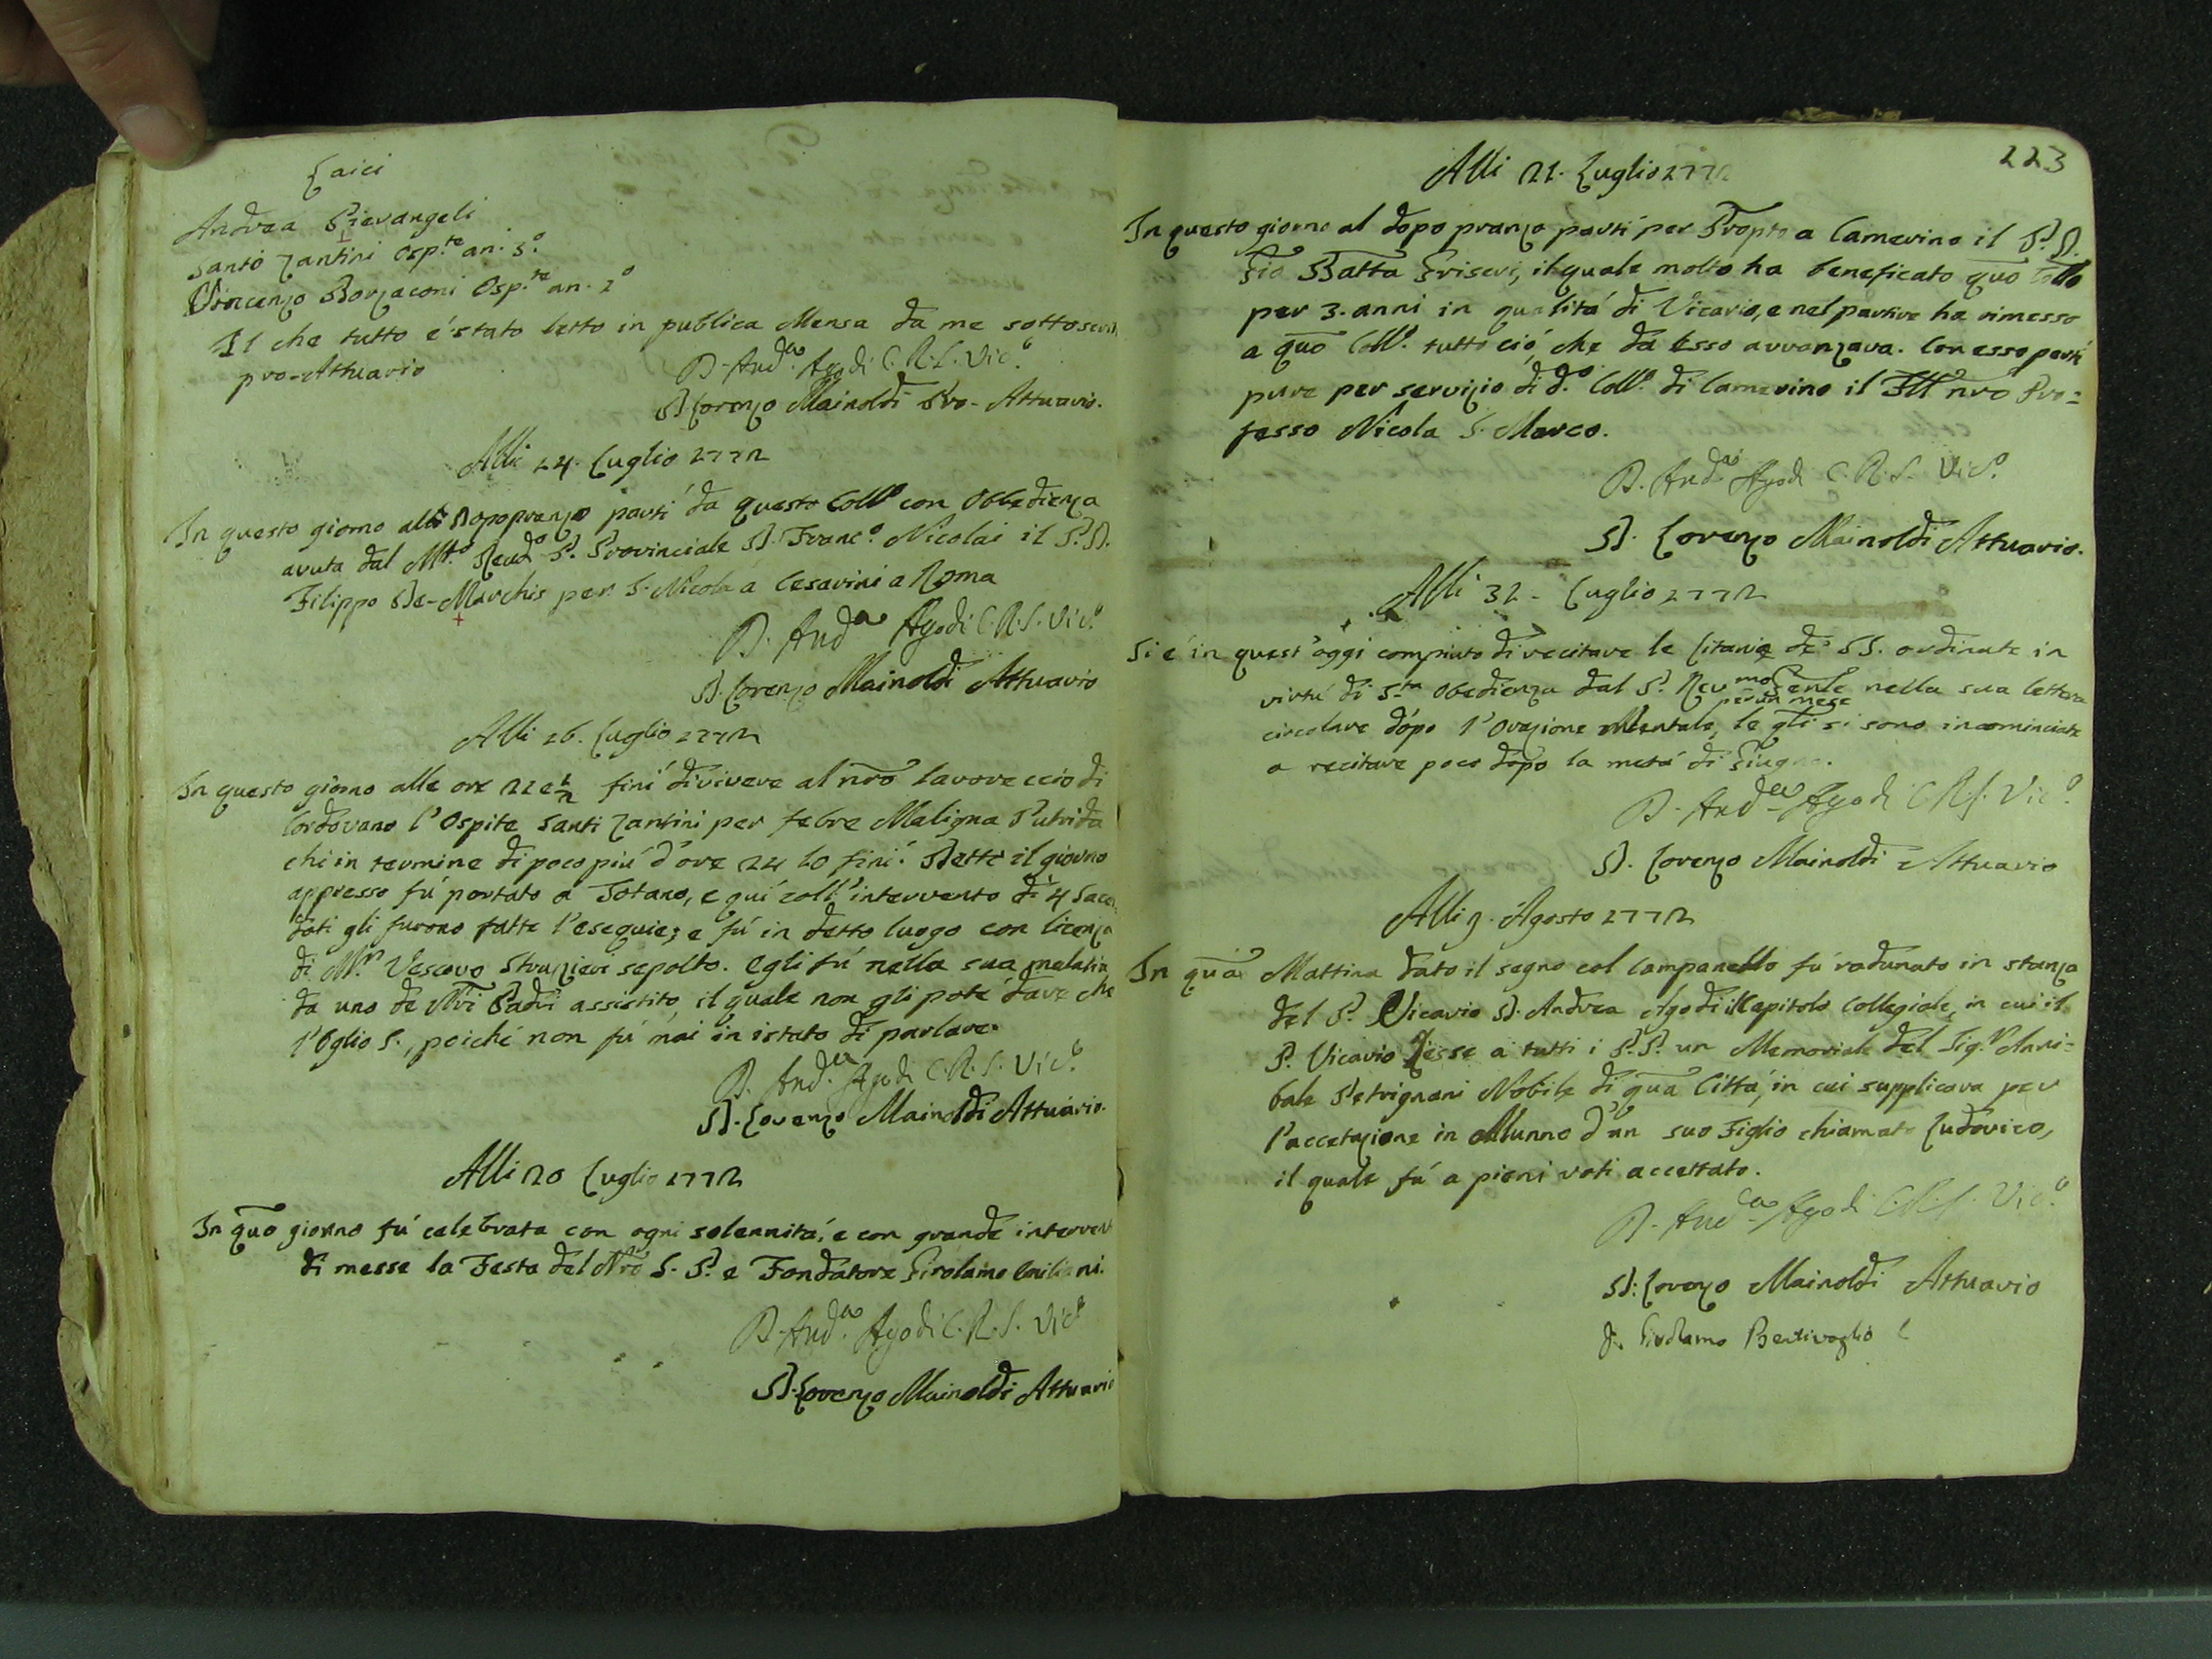 Laici
Andrea Pievangeli
Santo Zantini Osp.te an. 3.o
Vincenzo Borzaconi Osp.te an. 1o
Il che tutto é stato letto in publica Mensa da me sottoscrit
pro-Attuario
D. And.a Agodi C.R.S. Vic.o
D. Lorenzo Mainoldi Pro-Attuario.
Alli 14. Luglio 1772
In questo giorno alli Dopopranzo partí da questo Collo con Obbedienza
avuta dal M.to Revdo P. Provinciale D. Franc.o Nicolai il P.D.
Filippo De-Marchis per S. Nicola a Cesarini a Roma
D. And.a Agodi C.R.S. Vic.o
D. Lorenzo Mainoldi Attuario
Alli 16. Luglio 1772
In questo giorno alle ore 22 e 1/2 finí di vivere al nro lavoreccio di
Cordovano l'Ospite Santi Zantini per febre Maligna Putrida
chi in termine di poco piú d'ore 24 lo finí. Detti il giorno
appresso fú portato a Totano, e quí coll'intervento di 4 Sacer
doti gli furono fatte l'esequie; e fú in detto luogo con licenza
di M.r Vescovo Strazieri sepolto. Egli fú nella sua malatia
da uno de Nri Padri assistito, il quale non gli poté dare che
l'Oglio S., poiché non fú mai in istato di parlare.
D. And.a Agodi C.R.S. Vic.o
D. Lorenzo Mainoldi Attuario.
Alli 20 Luglio 1772
In quo giorno fú celebrata con ogni solennitá, e con grande intervent
di messe la Festa del Nro S. P. e Fondatore Girolamo Emiliani.
D. And.a Agodi C.R.S. Vic.o
D. Lorenzo Mainoldi Attuario
223
Alli 21. Luglio 1772
In questo giorno al dopo pranzo partí per Propto a Camerino il P.D.
Gio Batta Griseri, il quale molto ha beneficato quo Collo
per 3. anni in qualitá di Vicario, e nel partire ha rimesso
a quo Coll.o tutto ció che da esso avvanzava. Con esso partí
pure per servizio di d.o Coll.o di Camerino il Fll nro Pro=
fesso Nicola S. Marco.
D. And.a Agodi C.R.S. Vic.o
D. Lorenzo Mainoldi Attuario.
Alli 31 - Luglio 1772
Si é in quest'oggi compiuto di recitare le Litanie de' SS. ordinate in
virtú di S.ta Obedienza dal P. Rev.mo Genle nella sua lettera
per un mese
circolare dópo l'Orazione Mentale, le qli si sono incominciate
a recitare poco dopo la metá di Giugno.
D. And.a Agodi C.R.S. Vic.o
D. Lorenzo Mainoldi Attuario
Alli 9. Agosto 1772
In qua Mattina dato il segno col Campanello fú radunato in stanza
del P. Vicario D. Andrea Agodi il Capitolo Collegiale, in cui il
P. Vicario Lesse a tutti i P.P. un Memoriale del Sig.r Anni=
bale Petrignani Nobile di qua Cittá, in cui supplicava per
l'accetazione in Alunno d'un suo Figlio chiamato Ludovico,
il quale fú a pieni voti accettato.
D. And.a Agodi C.R.S. Vic.o
D. Lorenzo Mainoldi Attuario
D. Girolamo Bentivoglio C